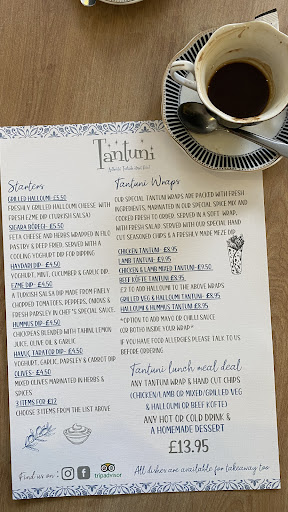 Tantuni
Starters
GRILLED HALLOUMI- £5.50
FRESHLY GRILLED HALLOUMI CHEESE WITH
FRESH EZME DIP (TURKISH SALSA)
SIGARA BÖREGI- £5.50
FETA CHEESE AND HERBS WRAPPED IN FILO
PASTRY & DEEP FRIED. SERVED WITH A
COOLING YOGHURT DIP FOR DIPPING
HAYDARI DIP- £4.50
YOGHURT, MINT, CUCUMBER & GARLIC DIP.
EZME DIP- £4.50
A TURKISH SALSA DIP MADE FROM FINELY
CHOPPED TOMATOES, PEPPERS, ONIONS &
FRESH PARSLEY IN CHEF'S SPECIAL SAUCE.
HUMMUS DIP- £4.50
CHICKPEAS BLENDED WITH TAHINI, LEMON
JUICE, OLIVE OIL & GARLIC.
HAVUC TARATOR DIP- £4.50
YOGHURT, GARLIC, PARSLEY & CARROT DIP
OLIVES- £4.50
MIXED OLIVES MARINATED IN HERBS &
SPICES
3 ITEMS FOR £12
CHOOSE 3 ITEMS FROM THE LIST ABOVE
Tantuni Wraps
OUR SPECIAL TANTUNI WRAPS ARE PACKED WITH FRESH
INGREDIENTS, MARINATED IN OUR SPECIAL SPICE MIX AND
COOKED FRESH TO ORDER. SERVED IN A SOFT WRAP,
WITH FRESH SALAD. SERVED WITH OUR SPECIAL HAND
CUT SEASONED CHIPS & A FRESHLY MADE MEZE DIP
CHICKEN TANTUNI- £8.95
LAMB TANTUNI- £9.95
CHICKEN & LAMB MIXED TANTUNI- £9.50
BEEF KÖFTE TANTUNI- £8.95
£2 TO ADD HALLOUMI TO THE ABOVE WRAPS
GRILLED VEG & HALLOUMI TANTUNI- £8.95
HALLOUMI & HUMMUS TANTUNI £8.95
*OPTION TO ADD MAYO OR CHILLI SAUCE
(OR BOTH) INSIDE YOUR WRAP*
IF YOU HAVE FOOD ALLERGIES PLEASE TALK TO US
BEFORE ORDERING
Tantuni lunch meal deal
ANY TANTUNI WRAP & HAND CUT CHIPS
(CHICKEN/LAMB OR MIXED/GRILLED VEG
& HALLOUMI OR BEEF KOFTE)
ANY HOT OR COLD DRINK &
A HOMEMADE DESSERT
£13.95
Find us on:
tripadvisor
All dishes are available for takeaway too